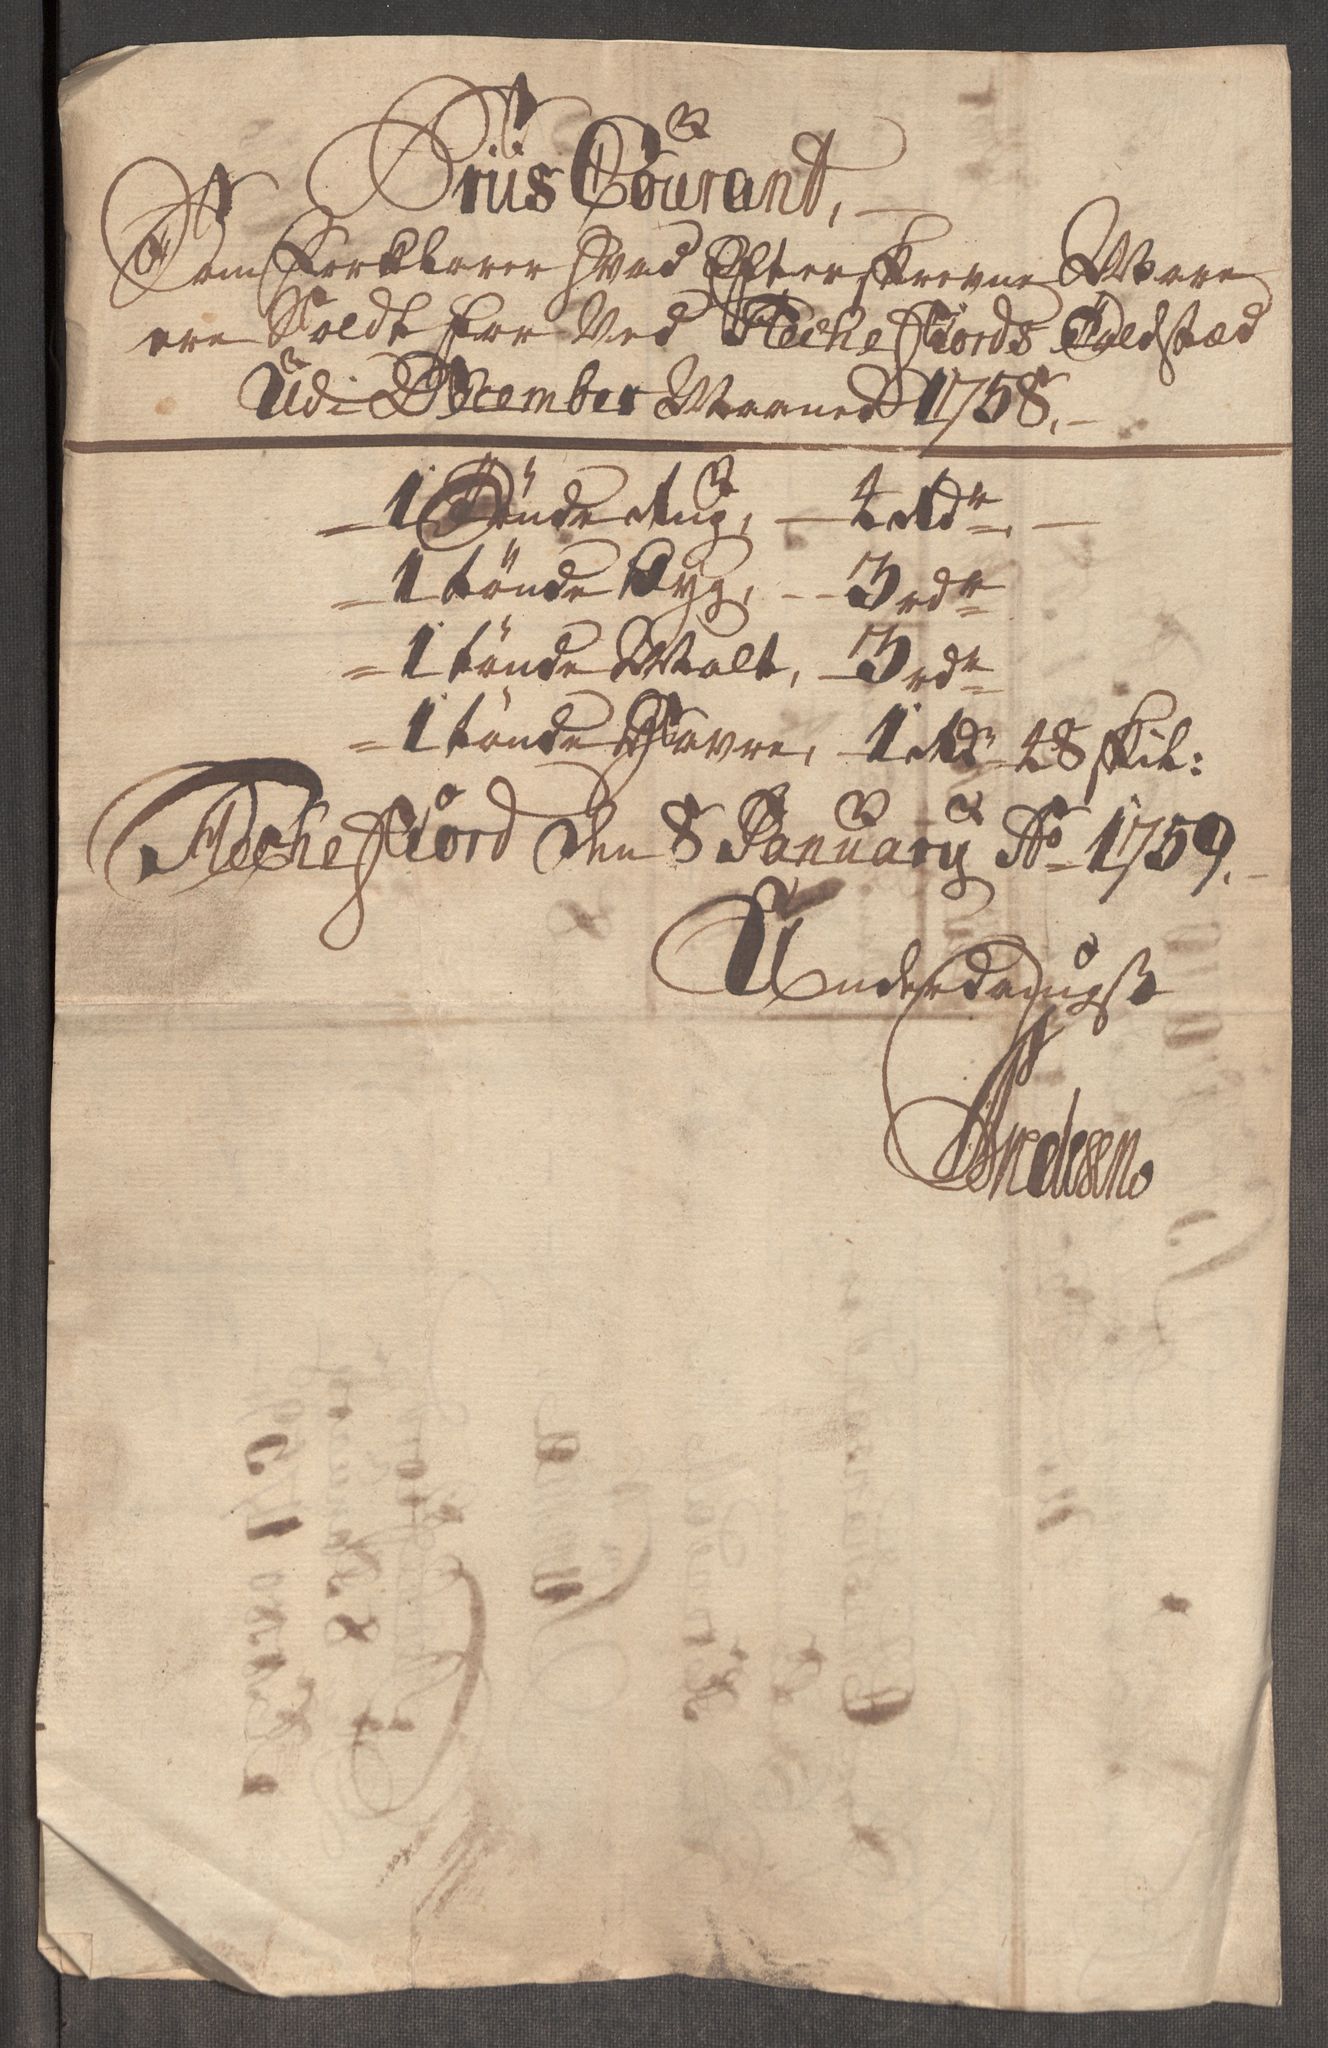 Priis Courant,
Som forklarer hvad Efterskrevne Vare
ere Soldt for Ved Flechefiords Toldsted
Udi December Maaned 1758.
1 Tönde Rug, 4 Rdr
1 tönde Byg, 3 rdr
1 tönde Malt, 3 rdr
1 tönde Havre, 1 Rdr 48 skil:
Flechefiord den 8 January Ao 1759.
Underdanigst
Andersen